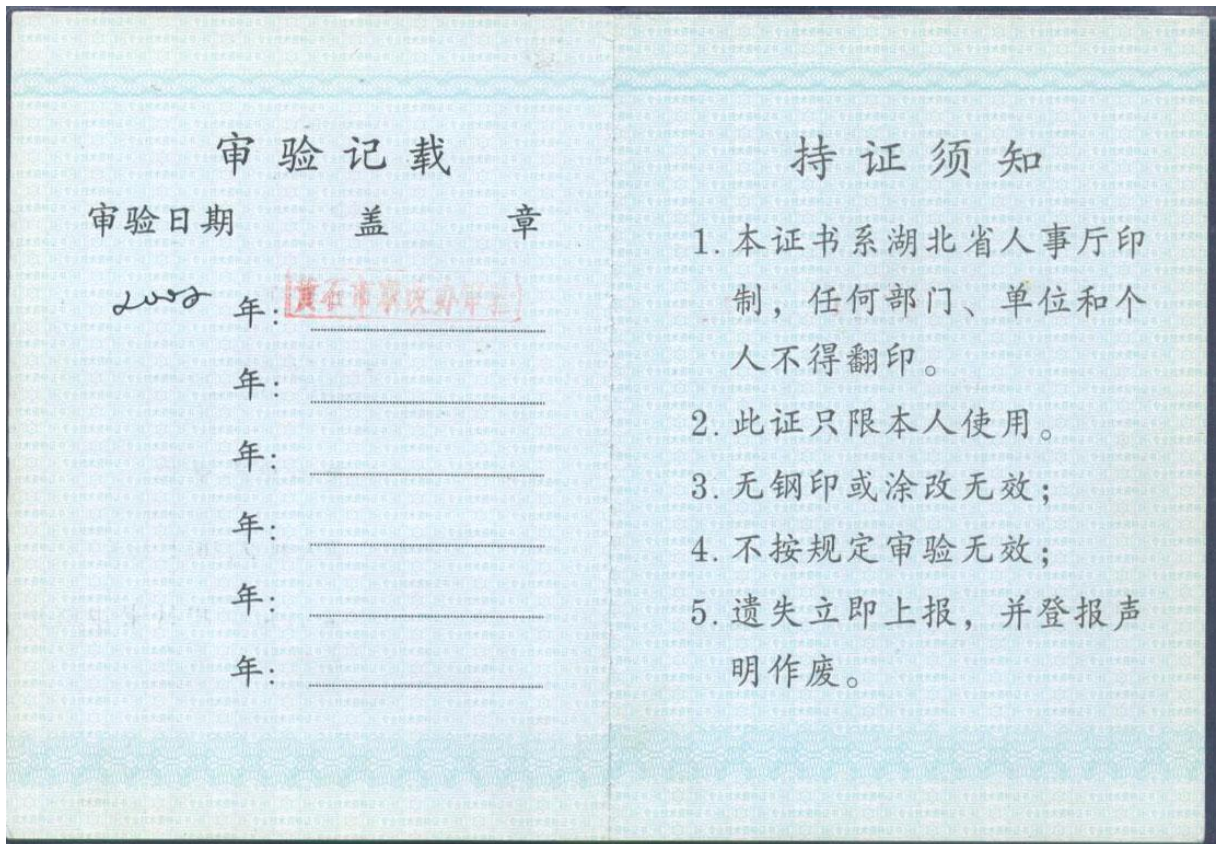 审验记载
审验日期 盖 章
年:
年:
年:
年:
年:
年:
持证须知
1.本证书系湖北省人事厅印
制，任何部门、单位和个
人不得翻印。
2.此证只限本人使用。
3.无钢印或涂改无效；
4.不按规定审验无效；
5.遗失立即上报，并登报声
明作废。